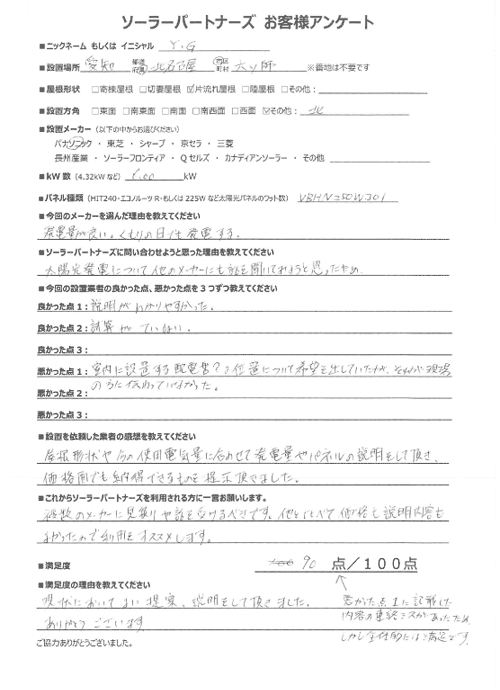 ソーラーパートナーズ お客様アンケート
■ニックネーム もしくは イニシャル Y.G
■設置場所 愛知 都道府県 北名古屋 市区町村 ※番地は不要です
■屋根形状 □寄棟屋根 □切妻屋根 ☑片流れ屋根 □陸屋根 □その他：
■設置方角 □東面 □南東面 □南面 □南西面 □西面 ☑その他：北
■設置メーカー（以下の中からお選びください）
パナソニック ・ 東芝 ・ シャープ ・ 京セラ ・ 三菱
長州産業 ・ ソーラーフロンティア ・ Qセルズ ・ カナディアンソーラー ・ その他
■kW 数（4.32kW など） kW
■パネル種類（HIT240・エコノルーツ R・もしくは 225W など太陽光パネルのワット数） VBHN250WJ01
■今回のメーカーを選んだ理由を教えてください
発電量が良い。くもりの日でも発電する。
■ソーラーパートナーズに問い合わせようと思った理由を教えてください
太陽光発電について他のメーカーにも話を聞いてみようと思ったため
■今回の設置業者の良かった点、悪かった点を３つずつ教えてください
良かった点１：説明がわかりやすかった。
良かった点２：試算が ていない。
良かった点３：
悪かった点１：室内に設置する配電盤？の位置について希望を出していたが、それが現場
悪かった点２：の方に伝わっていなかった。
悪かった点３：
■設置を依頼した業者の感想を教えてください
屋根形状や今の使用電気量に合わせて発電量やパネルの説明をして頂き、
価格面でも納得できるものを提示頂きました。
■これからソーラーパートナーズを利用される方に一言お願いします。
複数のメーカーに見積りや話を受けるべきです。他とくらべて価格も説明内容も
よかったので利用をオススメします。
■満足度 90 点／１００点
■満足度の理由を教えてください
現状においてよい提案、説明をして頂きました。
ありがとうございます
悪かった点1に記載した
内容の連絡ミスがあったため
しかし全体的には満足です。
ご協力ありがとうございました。